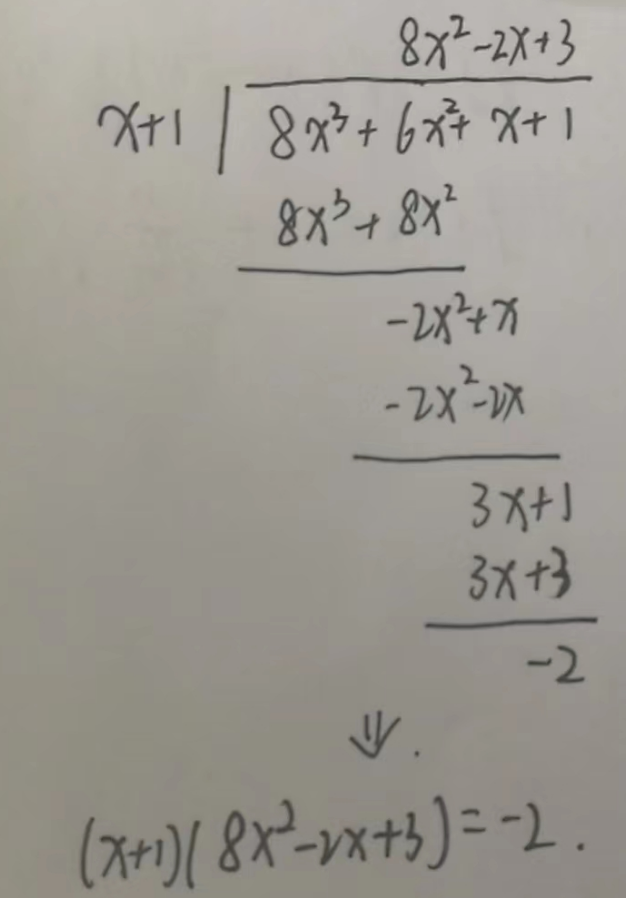 8x²-2x+3
x+1 | 8x³+6x²+x+1
8x³+8x²
-2x²+x
-2x²-2x
3x+1
3x+3
-2
⇓.
(x+1)(8x²-2x+3)=-2.